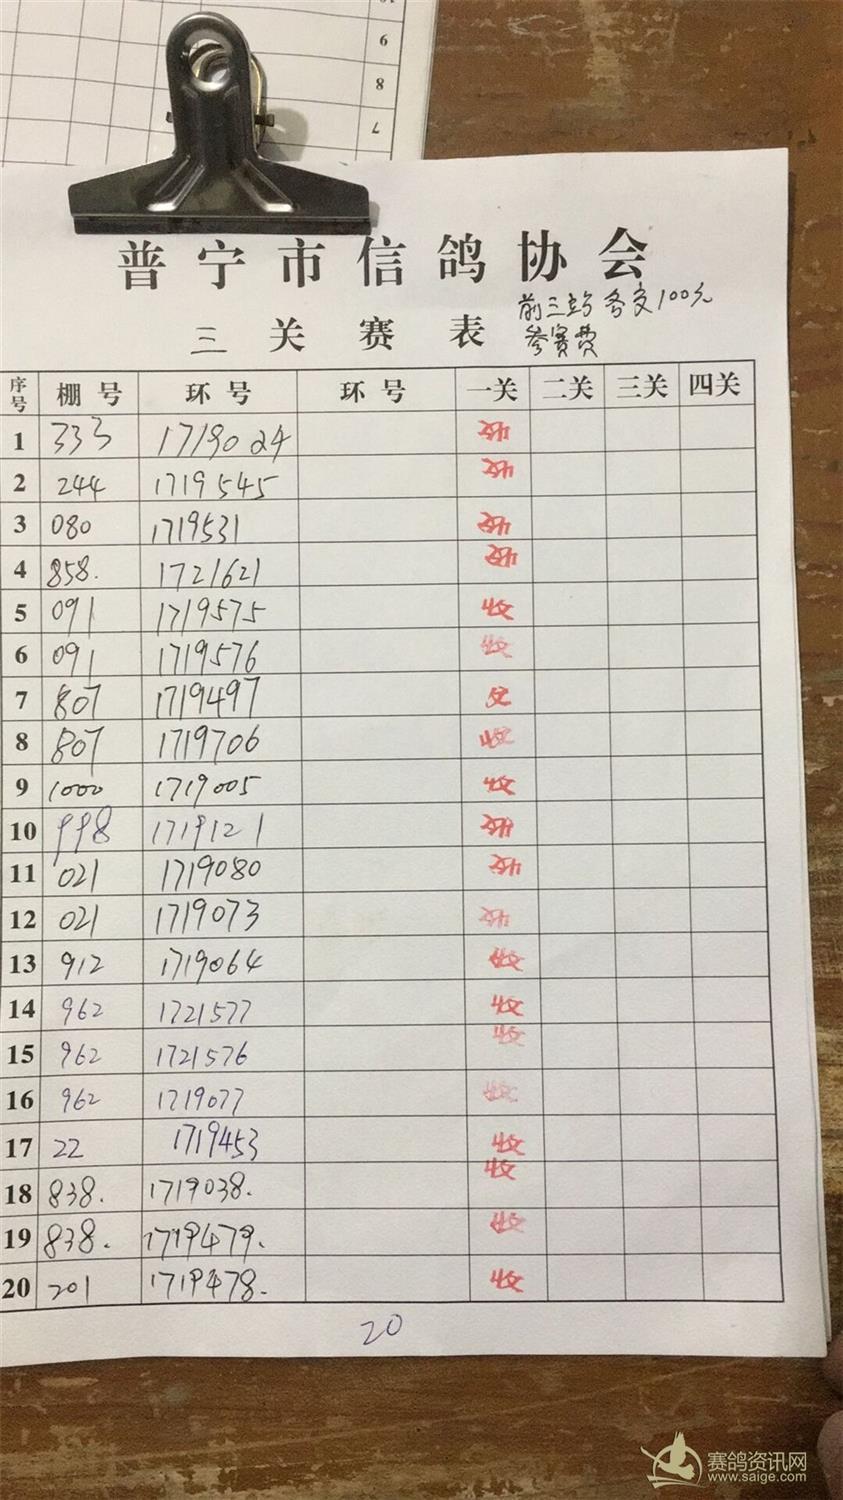 10
9
8
7
普宁市信鸽协会
前三站各交100元
参赛费
三关赛表
序号 棚号 环号 环号 一关 二关 三关 四关
1 333 1719024 收
2 244 1719545 收
3 080 1719531 收
4 858. 1721621 收
5 091 1719575 收
6 091 1719576 收
7 807 1719497 收
8 807 1719706 收
9 1000 1719005 收
10 998 1719121 收
11 021 1719080 收
12 021 1719073 收
13 912 1719064 收
14 962 1721577 收
15 962 1721576 收
16 962 1719077 收
17 22 1719453 收
18 838. 1719038. 收
19 838. 1719479. 收
20 201 1719478. 收
20
赛鸽资讯网
www.saige.com